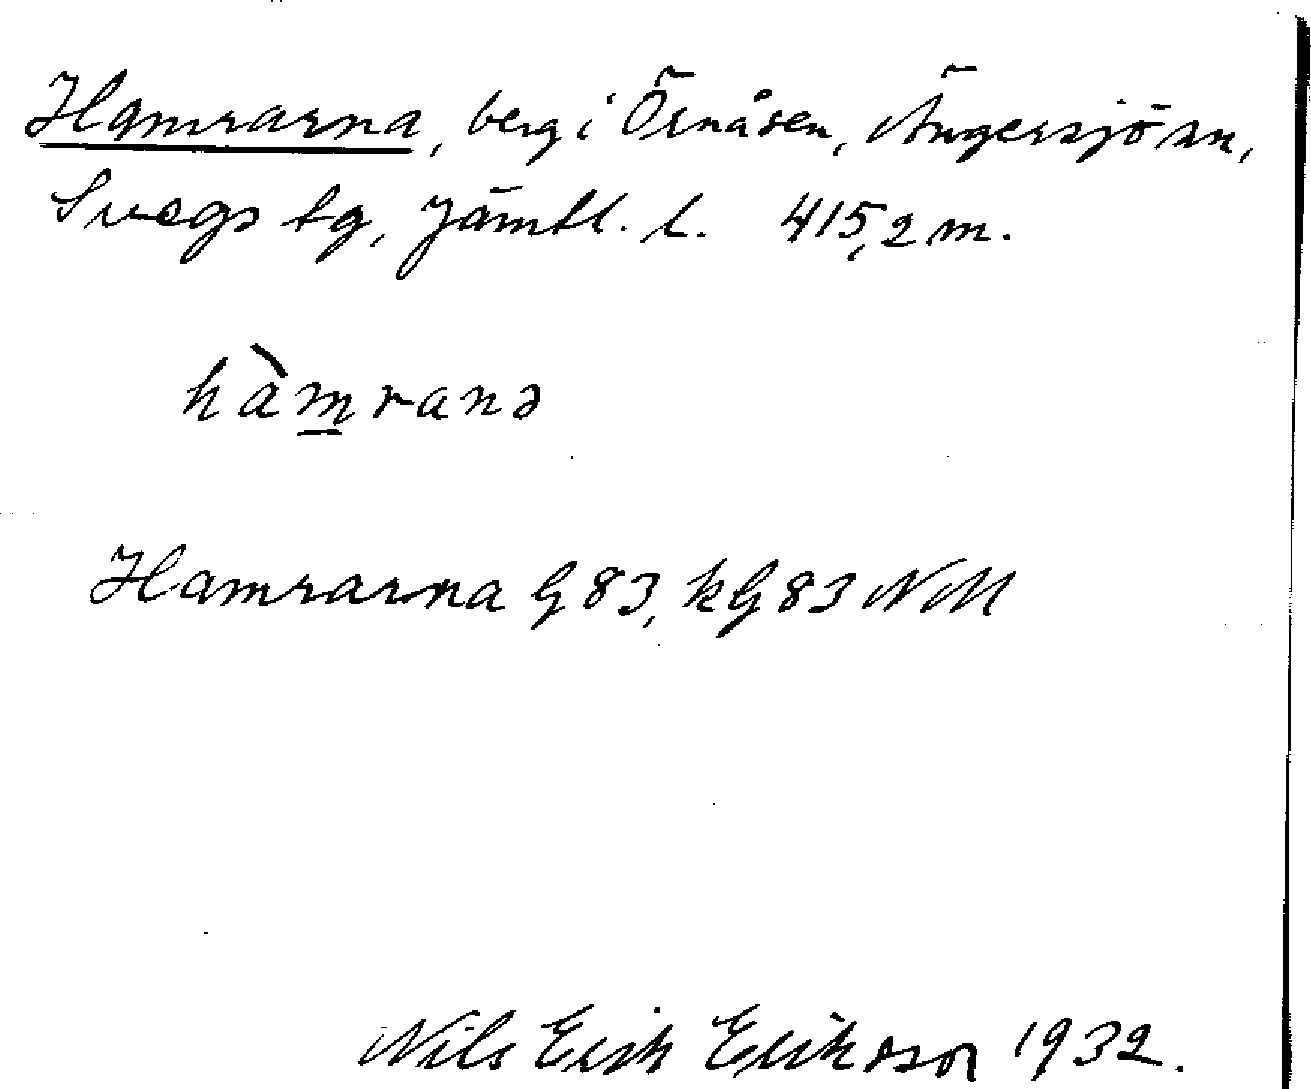 Hamrarna, berg i Örnåsen, Ängersjö sn,
Svegs tg, Jämtl. l. 415,2 m.
hàmranə
Hamrarna G 83, kG 83 NM
Nils Erik Eriksson 1932.